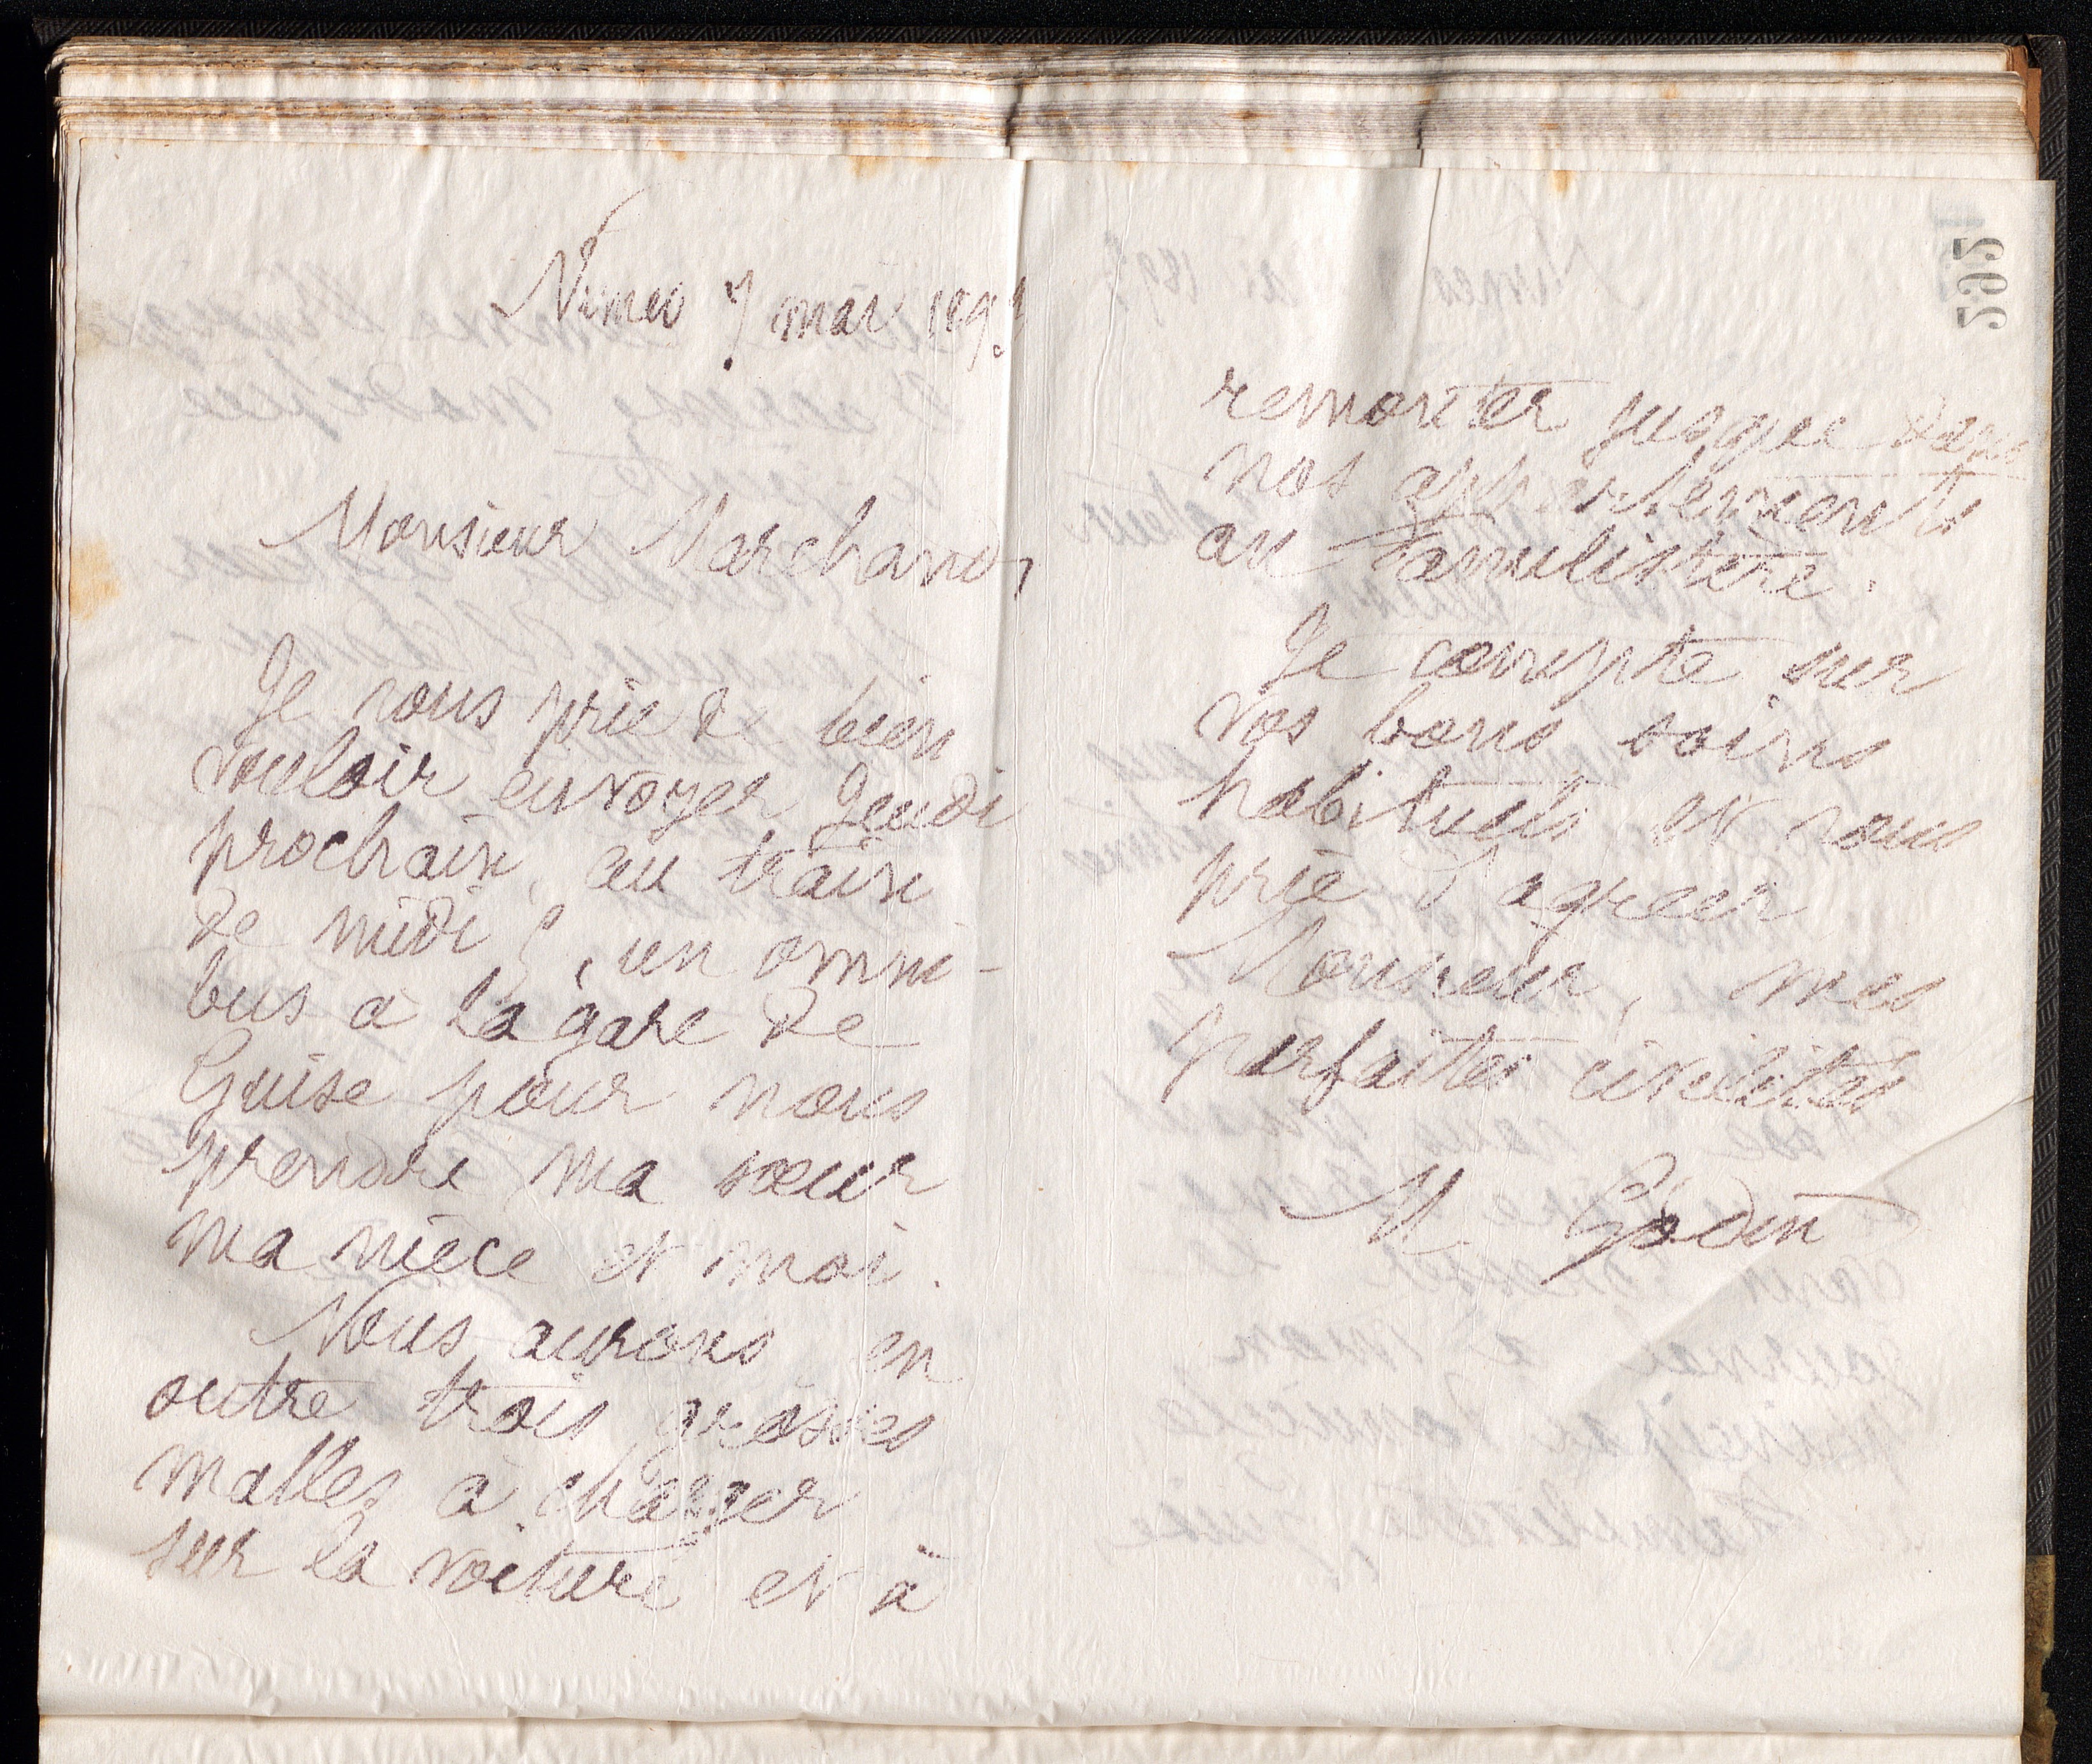 Nimes 7 mai 189
Monsieur Marchand,
Je vous prie de bien
vouloir envoyer Jeudi
prochain, au train
de midi, un omni-
bus à la gare de
Guise pour nous
prendre ma sœur
ma nièce et moi.
Nous aurons en
outre trois grosses
malles à charger
sur la voiture et à
remonter jusque dans
nos appartements
au Familistère.
Je compte sur
vos bons soins
habituels et vous
prie d'agréer
Monsieur, mes
parfaites civilités
M. Godin